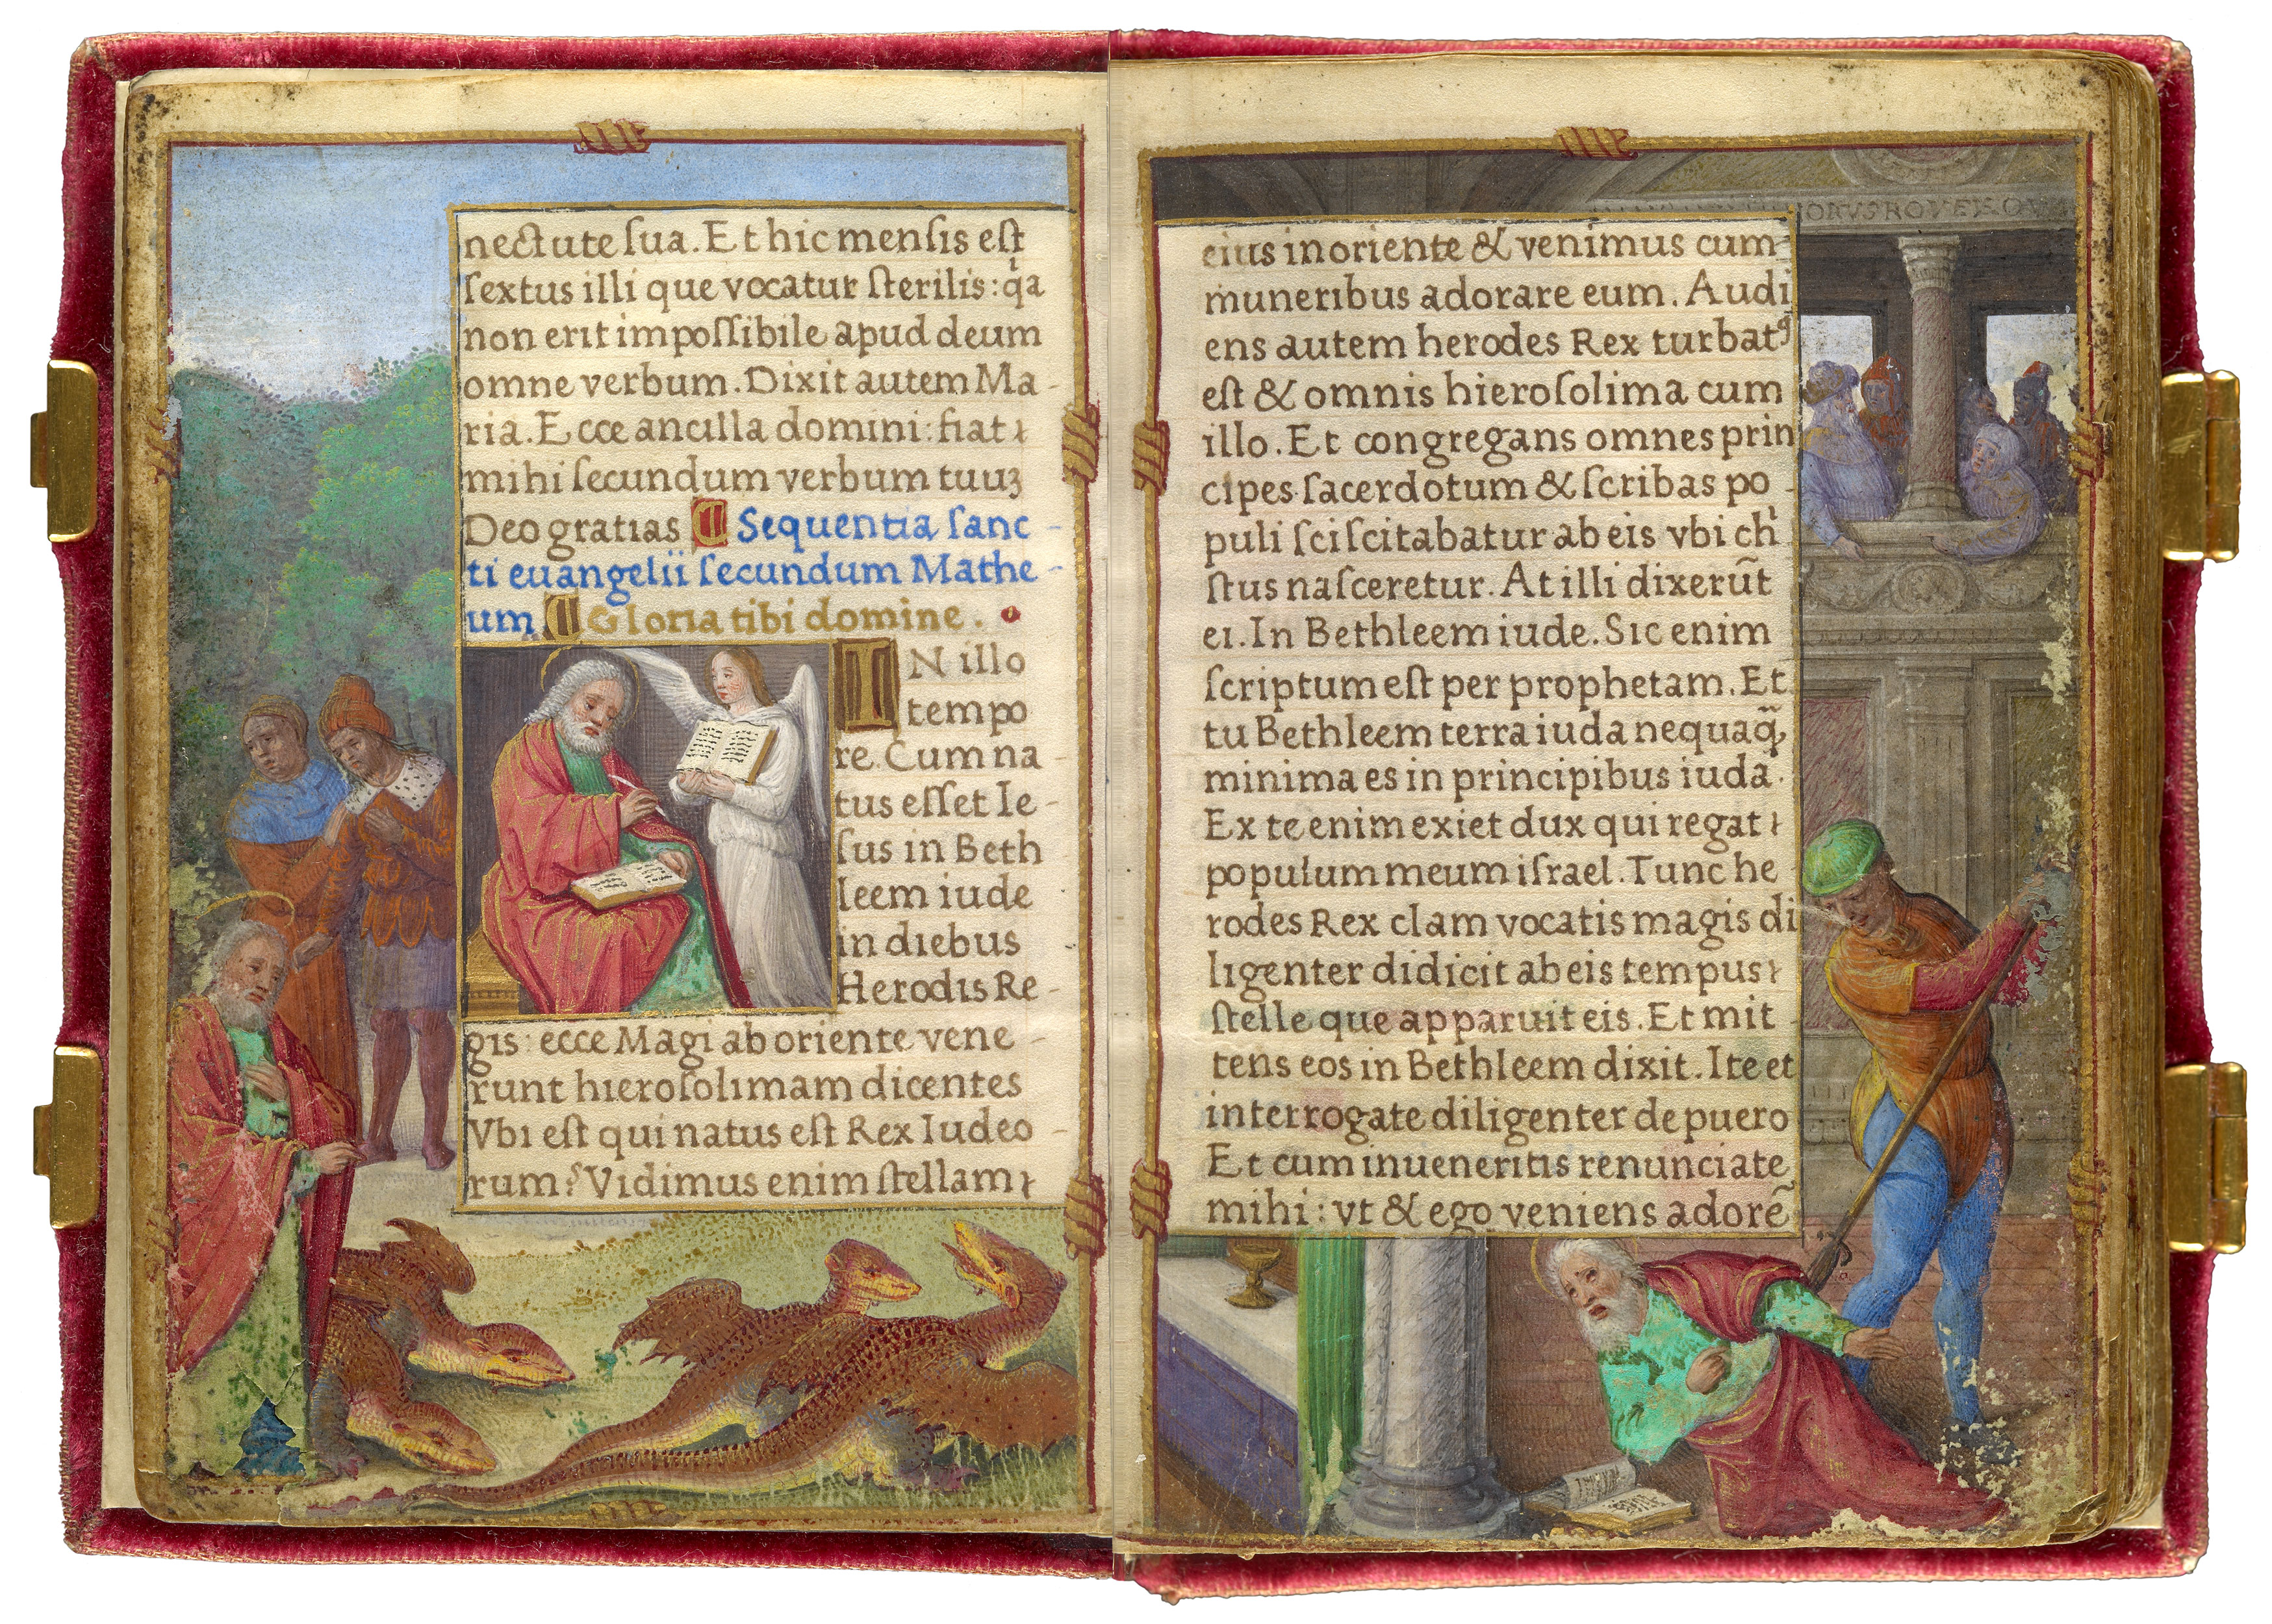 nectute ſua. Et hic menſis eſt
ſextus illi que vocatur ſterilis: qͥa
non erit impoſſibile apud deum
omne verbum. Dixit autem Ma-
ria. Ecce ancilla domini: fiat
mihi ſecundum verbum tuuꝫ
Deo gratias Sequentia ſanc-
ti euangelii ſecundum Mathe-
um Gloria tibi domine.
IN illo
tempo
re. Cum na-
tus eſſet Ie-
ſus in Beth
leem iude
in diebus
Herodis Re-
gis: ecce Magi ab oriente vene-
runt hieroſolimam dicentes
Vbi eſt qui natus eſt Rex Iudeo-
rum? Vidimus enim ſtellam
eius in oriente & venimus cum
muneribus adorare eum. Audi
ens autem herodes Rex turbatꝰ
eſt & omnis hieroſolima cum
illo. Et congregans omnes prin
cipes ſacerdotum & ſcribas po-
puli ſciſcitabatur ab eis vbi chͥ
ſtus naſceretur. At illi dixerūt
ei. In Bethleem iude. Sic enim
ſcriptum eſt per prophetam. Et
tu Bethleem terra iuda nequaq̃
minima es in principibus iuda.
Ex te enim exiet dux qui regat
populum meum iſrael. Tunc he
rodes Rex clam vocatis magis di
ligenter didicit ab eis tempus
ſtelle que apparuit eis. Et mit-
tens eos in Bethleem dixit. Ite et
interrogate diligenter de puero
Et cum inueneritis renunciate
mihi: vt & ego veniens adorē